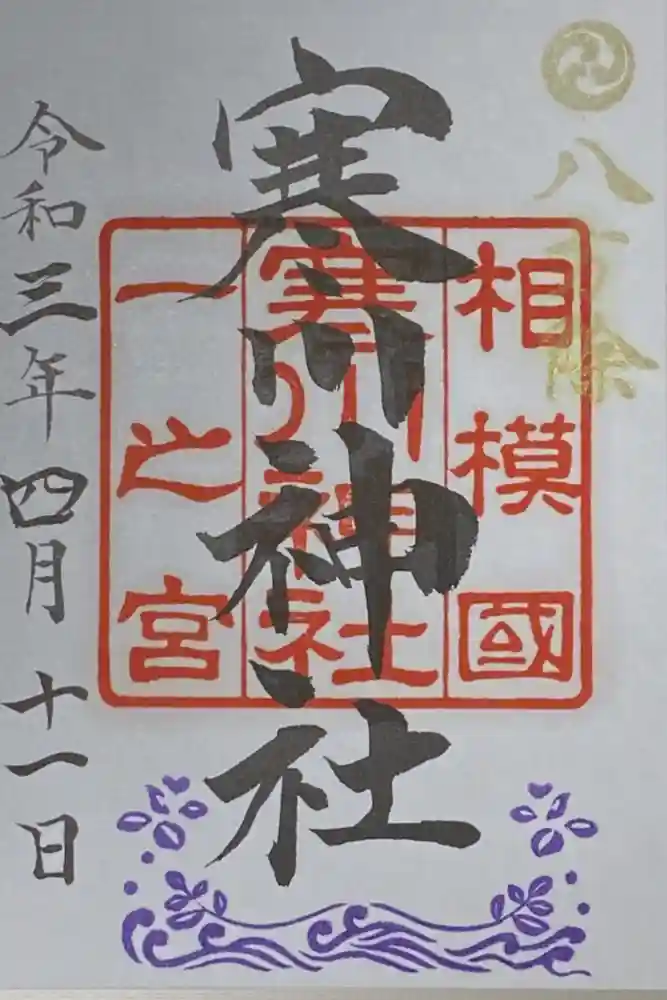 八方除
寒川神社
相模國
寒川神社
一之宮
令和三年四月十一日